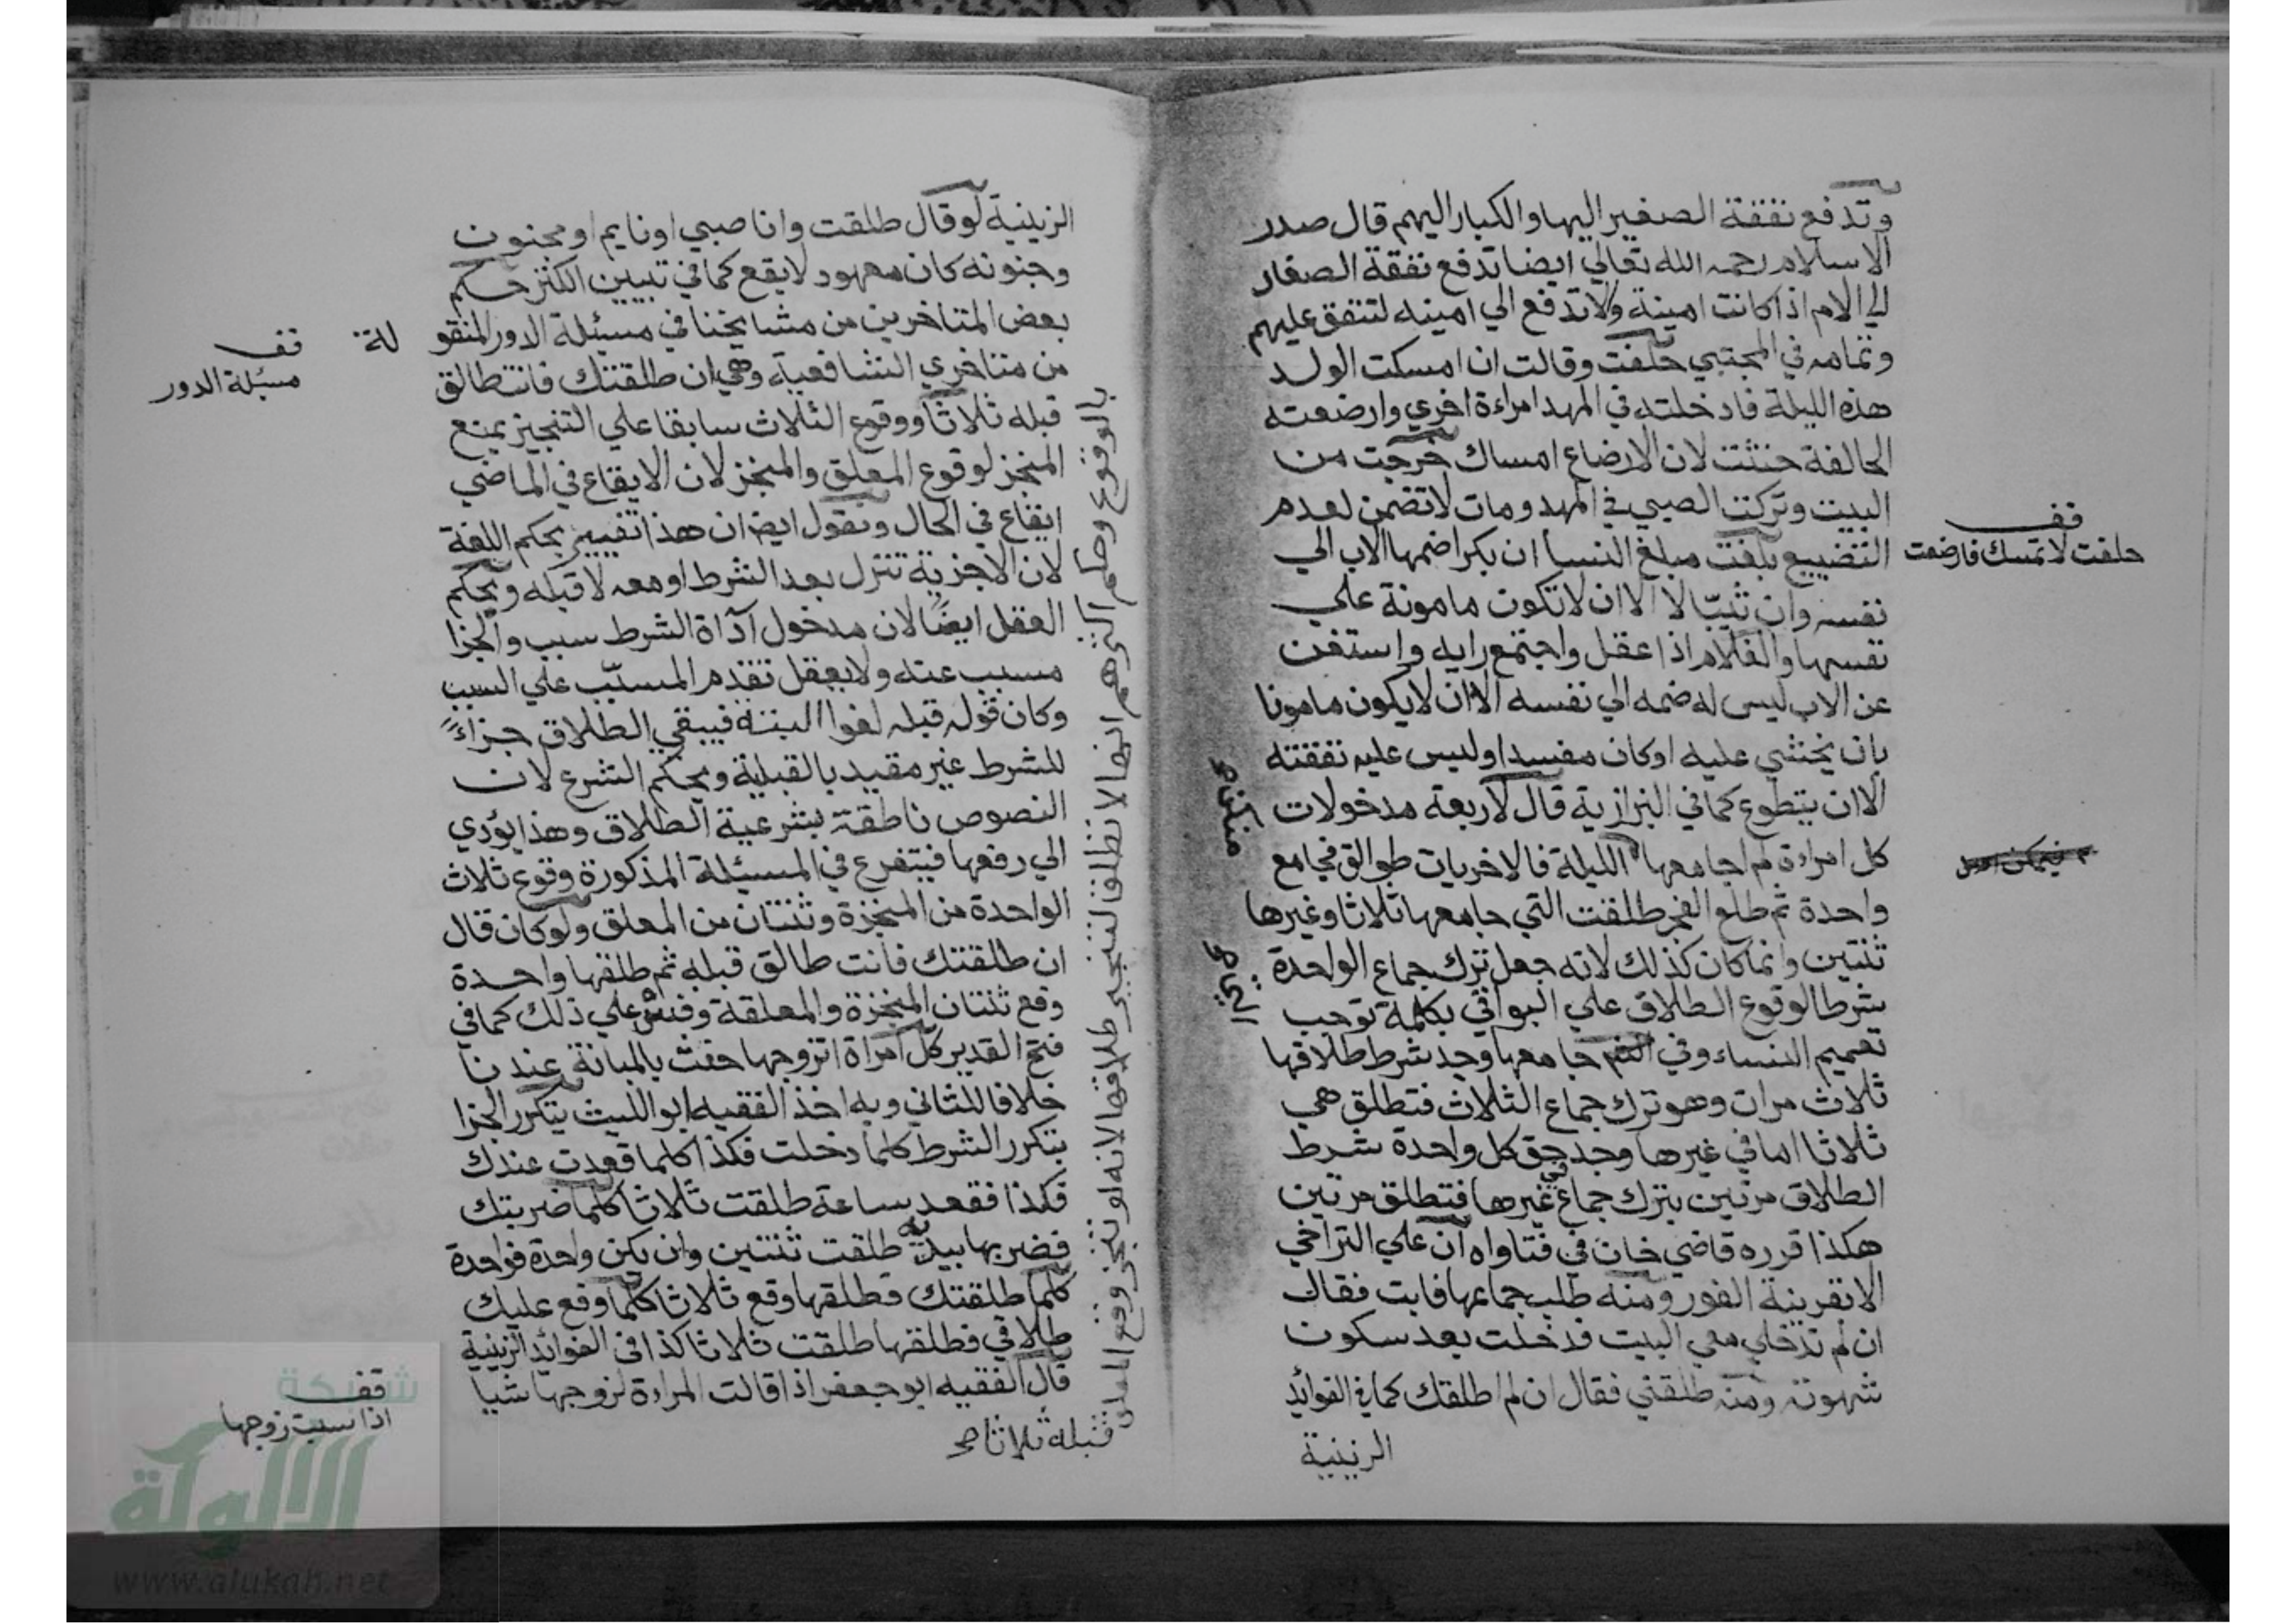 وتدفع نفقة الصغير اليها والكبار اليهم قال صدر
الاسلام رحمه الله تعالي ايضا تدفع نفقة الصغار
الي الام اذا كانت امينة ولا تدفع الي امينه لتنفق عليهم
وتمامه في المجتبي حلفت وقالت ان امسكت الولد
هذه الليلة فادخلته في المهد امراءة اخري وارضعته
الحالفة حنثت لان الارضاع امساك خرجت من
البيت وتركت الصبي في المهد ومات لا تضمن لعدم
التضييع بلغت مبلغ النسا ان بكرا ضمها الاب الي
نفسه وان ثيبّا لا الا ان لا تكون مامونة علي
نفسها والغلام اذا عقل واجتمع رايه واستغن
عن الاب ليس له ضمه الي نفسه الا ان لا يكون مامونا
بان يخشي عليه او كان مفسدا وليس عليه نفقته
الا ان يتطوع كما في البزازية قال لاربعة مدخولات
كل امراءة لم اجامعها الليلة فالاخريات طوالق فجامع
واحدة ثم طلع الفجر طلقت التي جامعها ثلاثا وغيرها
ثنتين وانما كان كذلك لانه جعل ترك جماع الواحدة
شرطا لوقوع الطلاق علي البواقي بكلمة توجب
تعميم النساء وفي التي جامعها وجد شرط طلاقها
ثلاث مرات وهو ترك جماع الثلاث فتطلق هي
ثلاثا اما في غيرها وجد في حق كل واحدة شرط
الطلاق مرتين بترك جماع غيرها فتطلق مرتين
هكذا قرره قاضي خان في فتاواه ان علي التراخي
الا بقرينة الفور ومنه طلب جماعها فابت فقال
ان لم تدخلي معي البيت فدخلت بعد سكون
شهوته ومنه طلقني فقال ان لم اطلقك كما في الفوائد
الزينية
قف
حلفت لا تمسك فارضعت
منكن
الزينية لو قال طلقت وانا صبي او نايم او مجنون
وجنونه كان معهود لا يقع كما في تبيين الكنز حكم
بعض المتاخرين من مشايخنا في مسئلة الدور المنقو لة
من متاخري الشافعية وهي ان طلقتك فانت طالق
قبله ثلاثا ووقوع الثلاث سابقا علي التنجيز يمنع
المنجز لوقوع المعلق والمنجز لان الايقاع في الماضي
ايقاع في الحال ونقول ايضا ان هذا تغيير بحكم اللغة
لان الاجزية تنزل بعد الشرط او معه لا قبله وبحكم
العقل ايضًا لان مدخول آداة الشرط سبب والجزا
مسبب عنه ولا يعقل تقدم المسبّب علي السبب
وكان قوله قبله لغوا البتة فيبقي الطلاق جزاءً
للشرط غير مقيد بالقبلية وبحكم الشرع لان
النصوص ناطقة بشرعية الطلاق وهذا يؤدي
الي رفعها فيتفرع في المسئلة المذكورة وقوع ثلاث
الواحدة من المنجزة وثنتان من المعلق ولو كان قال
ان طلقتك فانت طالق قبله ثم طلقها واحدة
وقع ثنتان المنجزة والمعلقة وقس علي ذلك كما في
فتح القدير كل امراة اتزوجها حنث بالمبانة عندنا
خلافا للثاني وبه اخذ الفقيه ابو الليث يتكرر الجزا
بتكرر الشرط كلما دخلت فكذا كلما قعدت عندك
فكذا فقعد ساعة طلقت ثلاثا كلما ضربتك
فضربها بيديه طلقت ثنتين وان بكن واحدة فواحدة
كلما طلقتك فطلقها وقع ثلاثا كلما وقع عليك
طلاقي فطلقها طلقت ثلاثا كذا في الفوائد الزينية
قال الفقيه ابو جعفر اذا قالت المراءة لزوجها شيا
قف
مسئلة الدور
بالوقوع وحكم اكثرهم انها لا تطلق لتنجيز طلاقها لانه لو تنجز وقع المعلق
قبله ثلاثا صح
قف
اذا سبت زوجها
شبكة
الالوكة
www.alukah.net